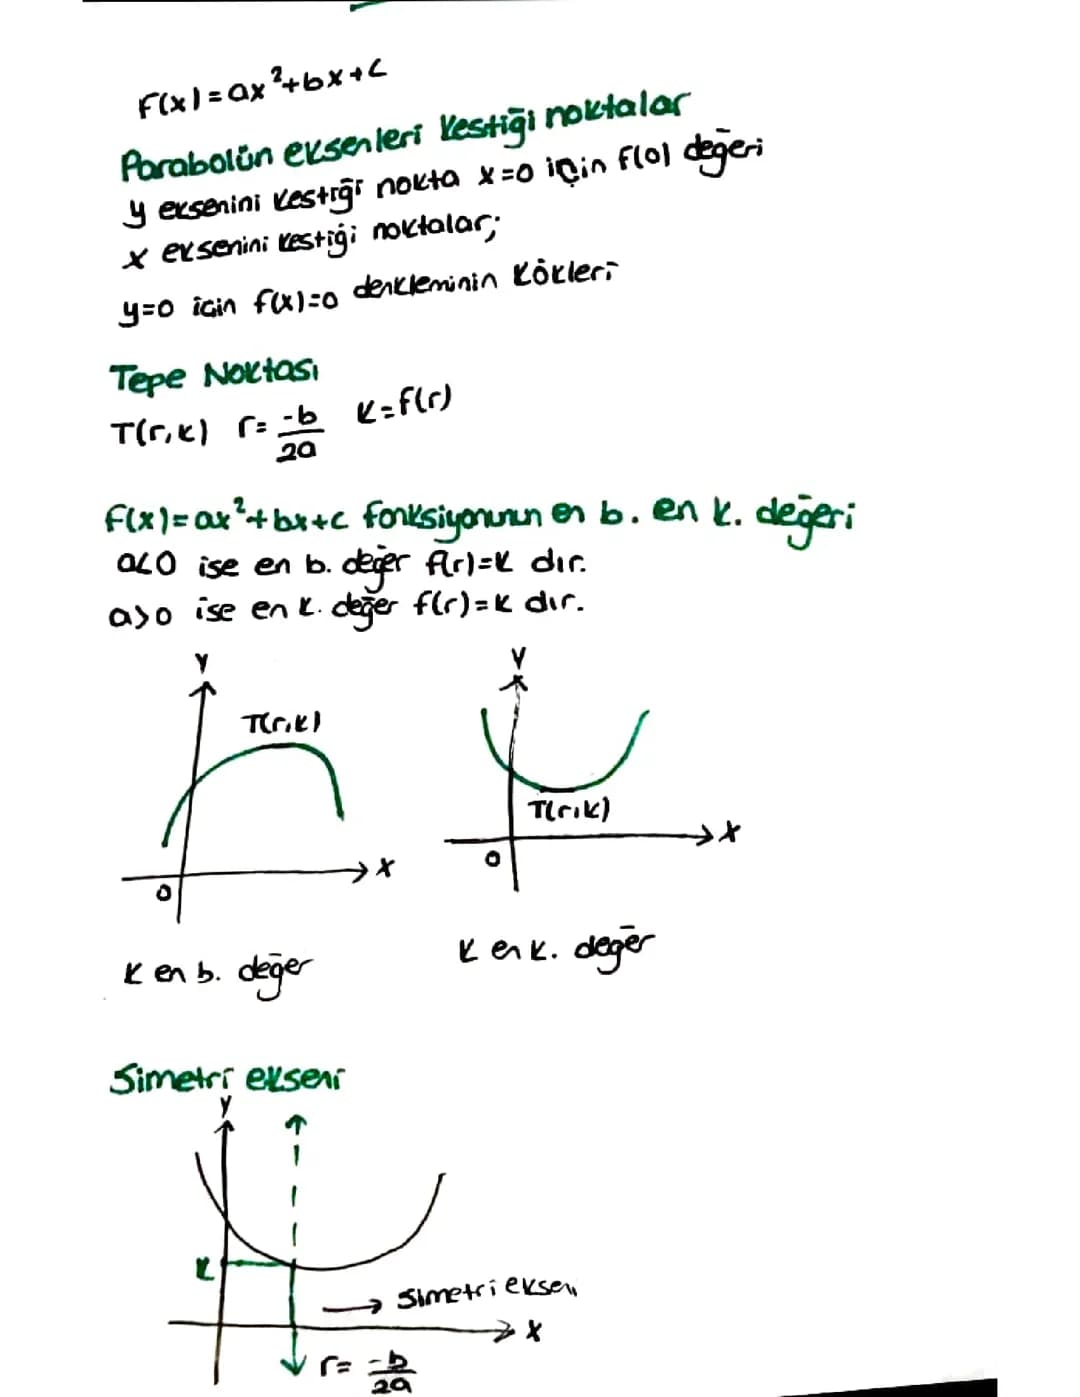 F(x)=ax²+bx+c
Parabolün eksenleri kestiği noktalar
y eksenini kestiği nokta x=0 için f(0) değeri
x eksenini kestiği noktalar;
y=0 için f(x)=0 denkleminin kökleri
Tepe Noktası
T(r,k) r= -b/2a k=f(r)
f(x)=ax²+bx+c fonksiyonunun en b. en k. değeri
a<0 ise en b. değer f(r)=k dır.
a>0 ise en k. değer f(r)=k dır.
y y
T(r,k)
T(r,k)
x
0
x
0
k en b. değer k en k. değer
Simetri ekseni
y
k
→ Simetri eksen
x
r= -b/2a